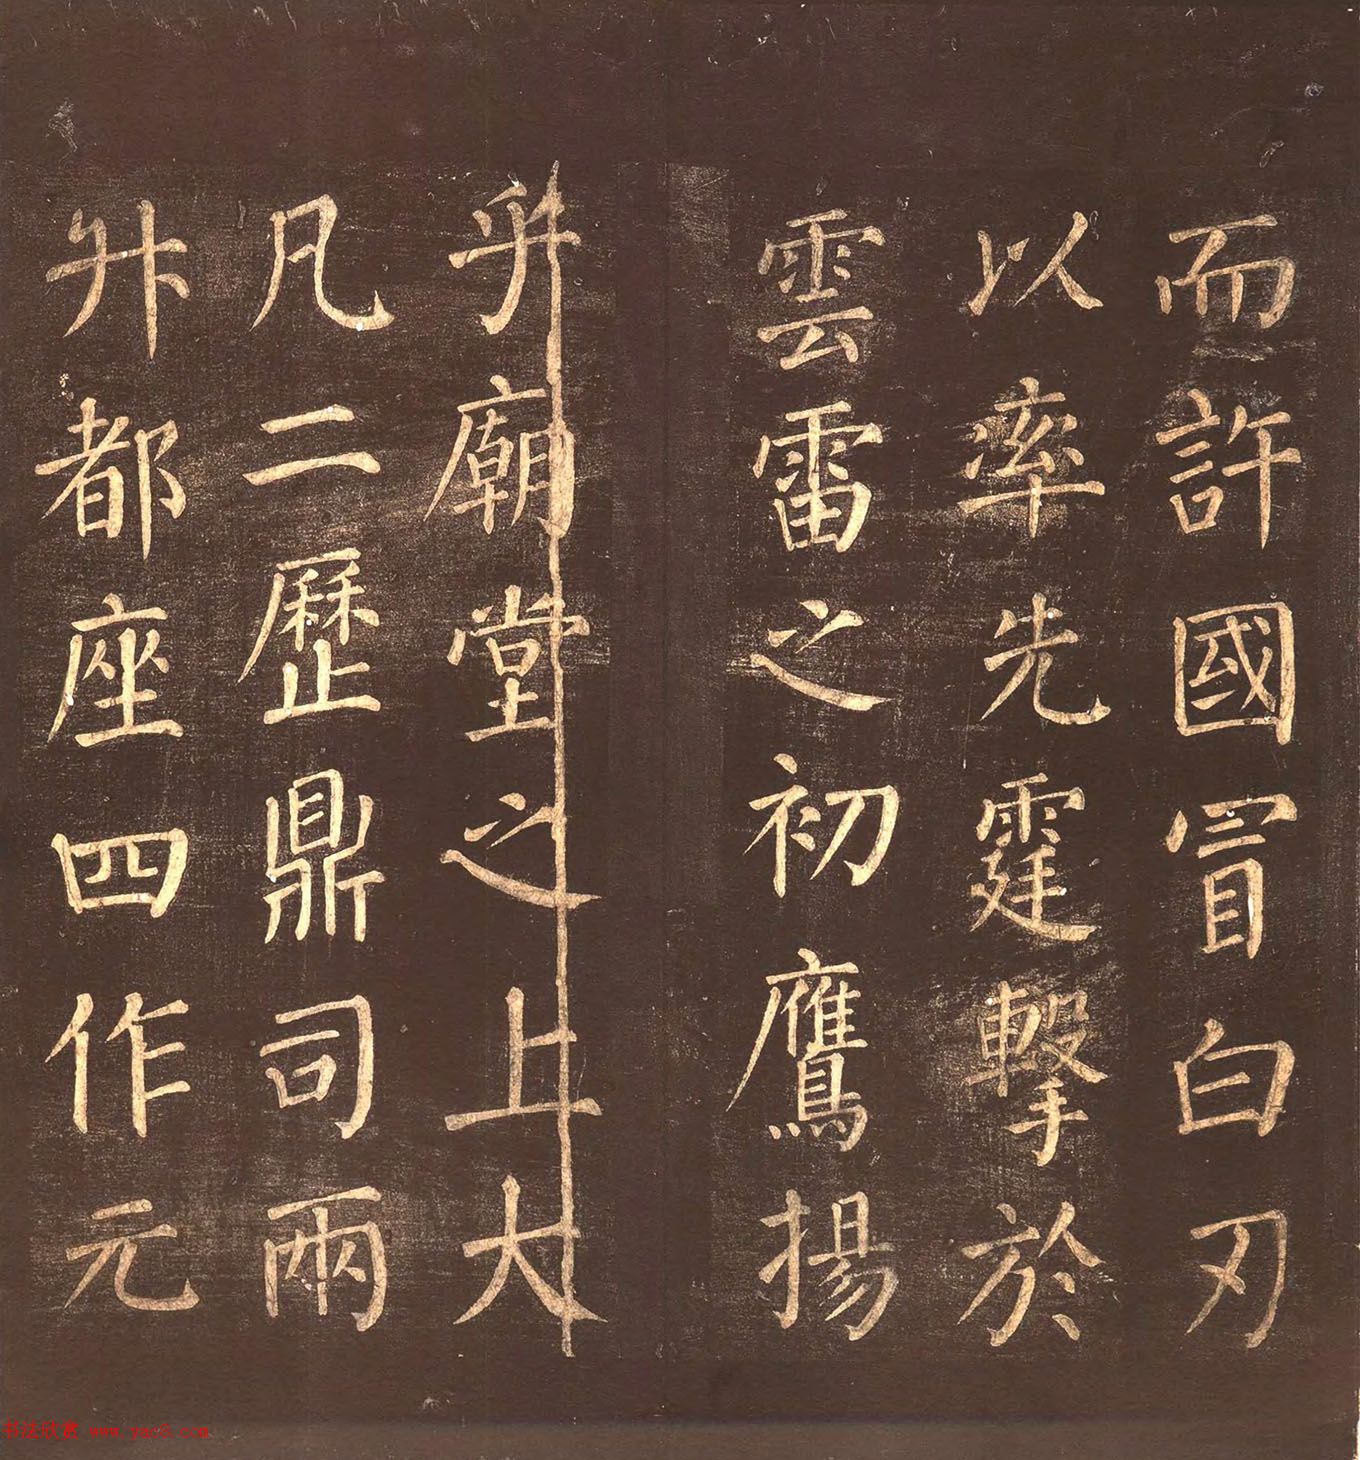 而許國冒白刃
以率先霆擊於
雲雷之初鷹揚
乎廟堂之上大
凡二歷鼎司兩
升都座四作元
书法欣赏 www.yac8.com